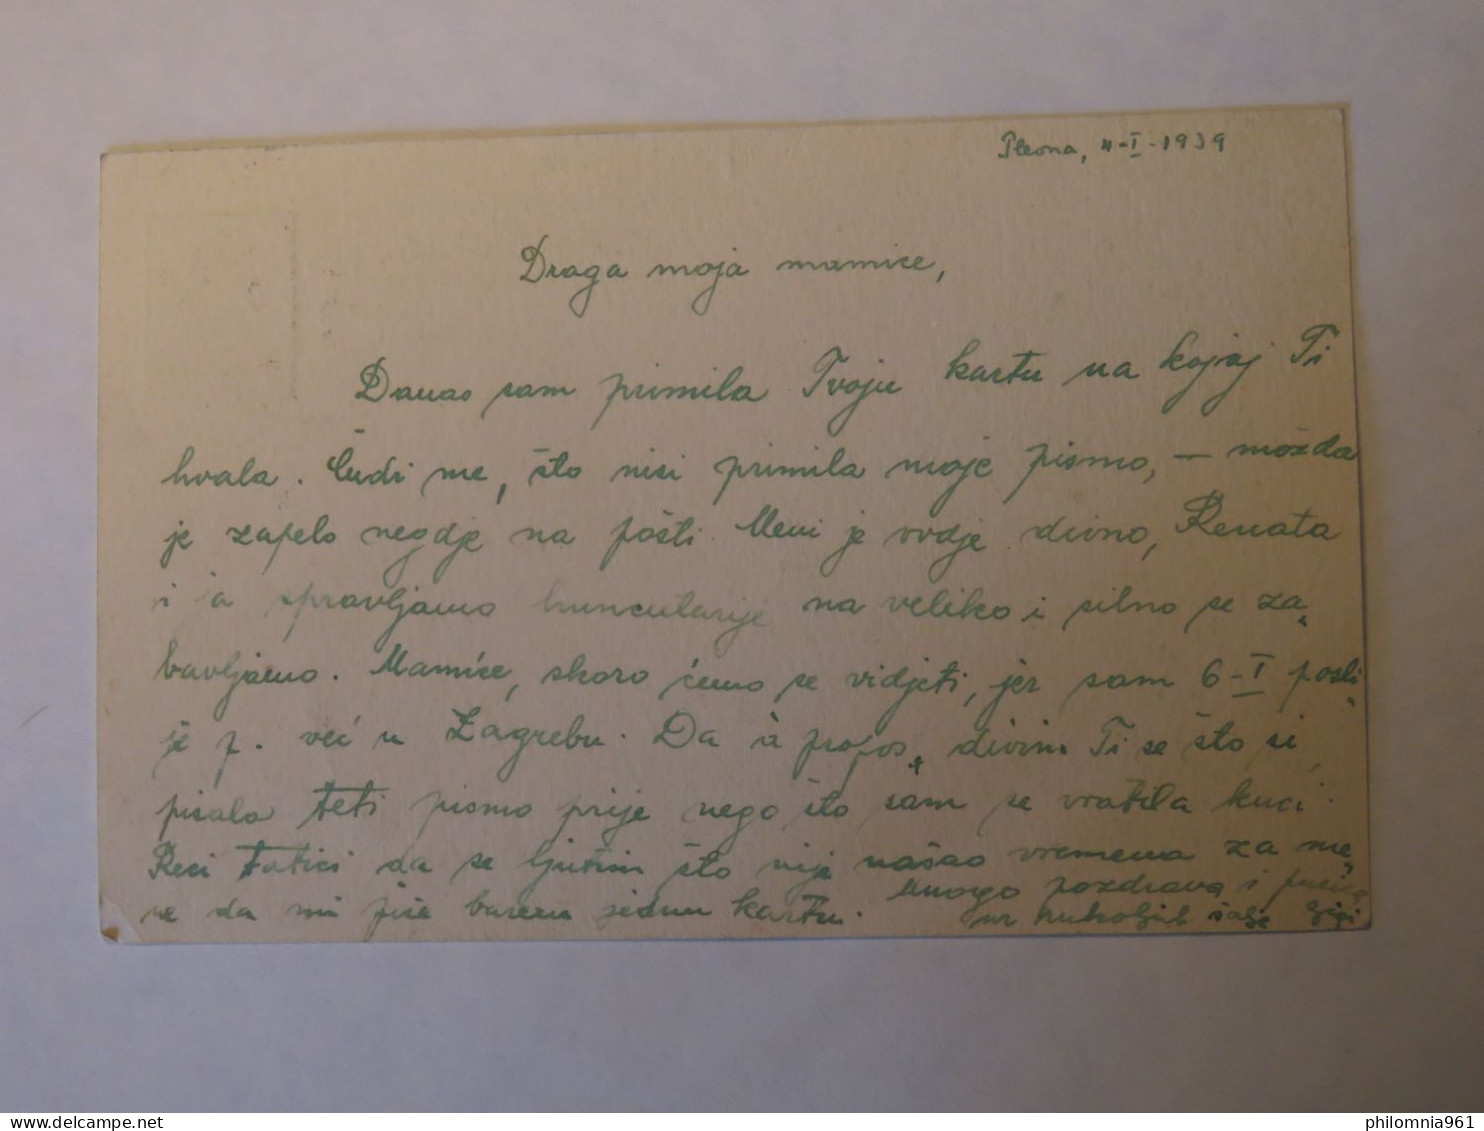 Plesna, 4-I-1939
Draga moja mamice,
Danas sam primila Tvoju kartu na kojoj Ti
hvala. Čudi me, što nisi primila moje pismo, – možda
je zapelo negdje na pošti. Meni je ovdje divno, Renata
i ja spravljamo huncutarije na veliko i silno se za„
bavljamo. Mamice, skoro ćemo se vidjeti, jer sam 6-I posli„
je p. već u Zagrebu. Da à propos, divim Ti se što si
pisala teti pismo prije nego što sam se vratila kući.
Reci tatici da se ljutim što nije našao vremena za me„
ne da mi piše barem jednu kartu. Mnogo pozdrava i pusica
uz rukoljub šalje
philomnia961